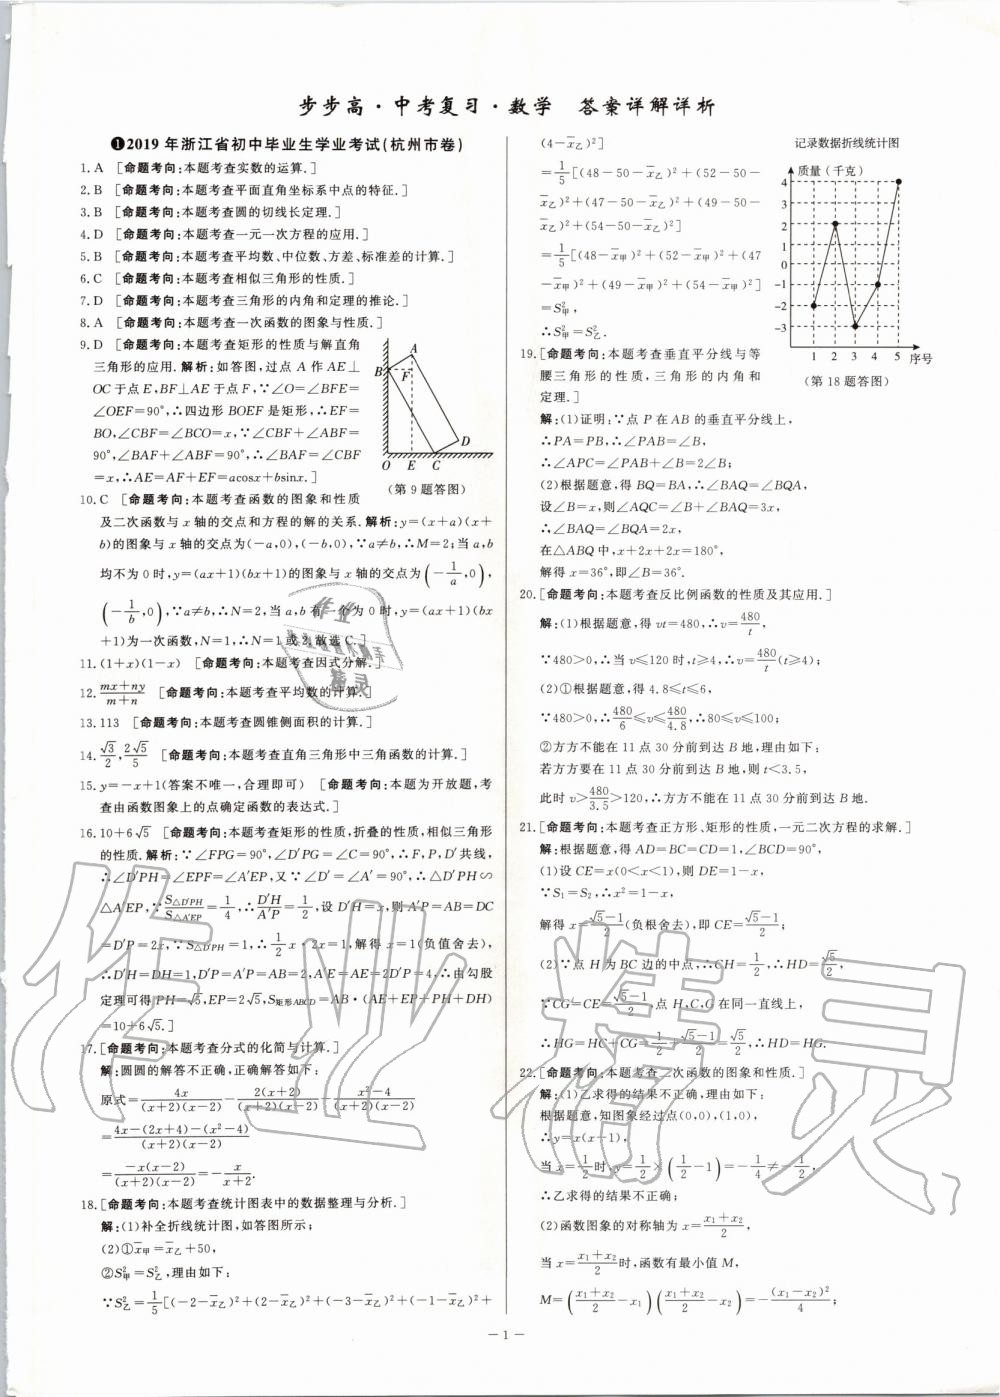 步步高·中考复习·数学　答案详解详析
❶2019年浙江省初中毕业生学业考试(杭州市卷)
1. A [命题考向:本题考查实数的运算.]
2. B [命题考向:本题考查平面直角坐标系中点的特征.]
3. B [命题考向:本题考查圆的切线长定理.]
4. D [命题考向:本题考查一元一次方程的应用.]
5. B [命题考向:本题考查平均数、中位数、方差、标准差的计算.]
6. C [命题考向:本题考查相似三角形的性质.]
7. D [命题考向:本题考查三角形的内角和定理的推论.]
8. A [命题考向:本题考查一次函数的图象与性质.]
9. D [命题考向:本题考查矩形的性质与解直角
三角形的应用. 解析:如答图,过点A作AE⊥
OC于点E,BF⊥AE于点F,∵∠O=∠BFE=
∠OEF=90°,∴四边形BOEF是矩形,∴EF=
BO,∠CBF=∠BCO=x,∵∠CBF+∠ABF=
90°,∠BAF+∠ABF=90°,∴∠BAF=∠CBF
=x,∴AE=AF+EF=acosx+bsinx.]
A
B
F
D
O E C
(第9题答图)
10. C [命题考向:本题考查函数的图象和性质
及二次函数与x轴的交点和方程的解的关系. 解析:y=(x+a)(x+
b)的图象与x轴的交点为(-a,0),(-b,0),∵a≠b,∴M=2;当a,b
均不为0时,y=(ax+1)(bx+1)的图象与x轴的交点为(-1/a,0),
(-1/b,0),∵a≠b,∴N=2,当a,b有一个为0时,y=(ax+1)(bx
+1)为一次函数,N=1,∴N=1或2.故选C.]
11. (1+x)(1-x) [命题考向:本题考查因式分解.]
12. (mx+ny)/(m+n) [命题考向:本题考查平均数的计算.]
13. 113 [命题考向:本题考查圆锥侧面积的计算.]
14. √3/2, 2√5/5 [命题考向:本题考查直角三角形中三角函数的计算.]
15. y=-x+1(答案不唯一,合理即可) [命题考向:本题为开放题,考
查由函数图象上的点确定函数的表达式.]
16. 10+6√5 [命题考向:本题考查矩形的性质,折叠的性质,相似三角形
的性质. 解析:∵∠FPG=90°,∠D′PG=∠C=90°,∴F,P,D′共线,
∴∠D′PH=∠EPF=∠A′EP,又∵∠D′=∠A′=90°,∴△D′PH∽
△A′EP,∵S△D′PH/S△A′EP=1/4,∴D′H/A′P=1/2,设D′H=x,则A′P=AB=DC
=D′P=2x,∵S△D′PH=1,∴1/2x·2x=1,解得x=1(负值舍去),
∴D′H=DH=1,D′P=A′P=AB=2,A′E=2D′P=4,∴由勾股
定理可得PH=√5,EP=2√5,S矩形ABCD=AB·(AE+EP+PH+DH)
=10+6√5.]
17. [命题考向:本题考查分式的化简与计算.]
解:圆圆的解答不正确,正确解答如下:
原式=4x/((x+2)(x-2))-2(x+2)/((x+2)(x-2))-(x²-4)/((x+2)(x-2))
=(4x-(2x+4)-(x²-4))/((x+2)(x-2))
=-x(x-2)/((x+2)(x-2))=-x/(x+2).
18. [命题考向:本题考查统计图表中的数据整理与分析.]
解:(1)补全折线统计图,如答图所示;
(2)①x̄甲=x̄乙+50,
②S²甲=S²乙,理由如下:
∵S²乙=1/5[(-2-x̄乙)²+(2-x̄乙)²+(-3-x̄乙)²+(-1-x̄乙)²+
(4-x̄乙)²]
=1/5[(48-50-x̄乙)²+(52-50-
x̄乙)²+(47-50-x̄乙)²+(49-50-
x̄乙)²+(54-50-x̄乙)²]
=1/5[(48-x̄甲)²+(52-x̄甲)²+(47
-x̄甲)²+(49-x̄甲)²+(54-x̄甲)²]
=S²甲,
∴S²甲=S²乙.
记录数据折线统计图
质量(千克)
4
3
2
1
0
-1
-2
-3
1 2 3 4 5 序号
(第18题答图)
19. [命题考向:本题考查垂直平分线与等
腰三角形的性质,三角形的内角和
定理.]
解:(1)证明:∵点P在AB的垂直平分线上,
∴PA=PB,∴∠PAB=∠B,
∴∠APC=∠PAB+∠B=2∠B;
(2)根据题意,得BQ=BA,∴∠BAQ=∠BQA,
设∠B=x,则∠AQC=∠B+∠BAQ=3x,
∴∠BAQ=∠BQA=2x,
在△ABQ中,x+2x+2x=180°,
解得x=36°,即∠B=36°.
20. [命题考向:本题考查反比例函数的性质及其应用.]
解:(1)根据题意,得vt=480,∴v=480/t,
∵480>0,∴当v≤120时,t≥4,∴v=480/t(t≥4);
(2)①根据题意,得4.8≤t≤6,
∵480>0,∴480/6≤v≤480/4.8,∴80≤v≤100;
②方方不能在11点30分前到达B地,理由如下:
若方方要在11点30分前到达B地,则t<3.5,
此时v>480/3.5>120,∴方方不能在11点30分前到达B地.
21. [命题考向:本题考查正方形、矩形的性质,一元二次方程的求解.]
解:根据题意,得AD=BC=CD=1,∠BCD=90°,
(1)设CE=x(0<x<1),则DE=1-x,
∵S₁=S₂,∴x²=1-x,
解得x=(√5-1)/2(负根舍去),即CE=(√5-1)/2;
(2)∵点H为BC边的中点,∴CH=1/2,∴HD=√5/2,
∵CG=CE=(√5-1)/2,点H,C,G在同一直线上,
∴HG=HC+CG=1/2+(√5-1)/2=√5/2,∴HD=HG.
22. [命题考向:本题考查二次函数的图象和性质.]
解:(1)乙求得的结果不正确,理由如下:
根据题意,知图象经过点(0,0),(1,0),
∴y=x(x-1),
当x=1/2时,y=1/2×(1/2-1)=-1/4≠-1/2,
∴乙求得的结果不正确;
(2)函数图象的对称轴为x=(x₁+x₂)/2,
当x=(x₁+x₂)/2时,函数有最小值M,
M=((x₁+x₂)/2-x₁)((x₁+x₂)/2-x₂)=-(x₁-x₂)²/4;
— 1 —
作业精灵